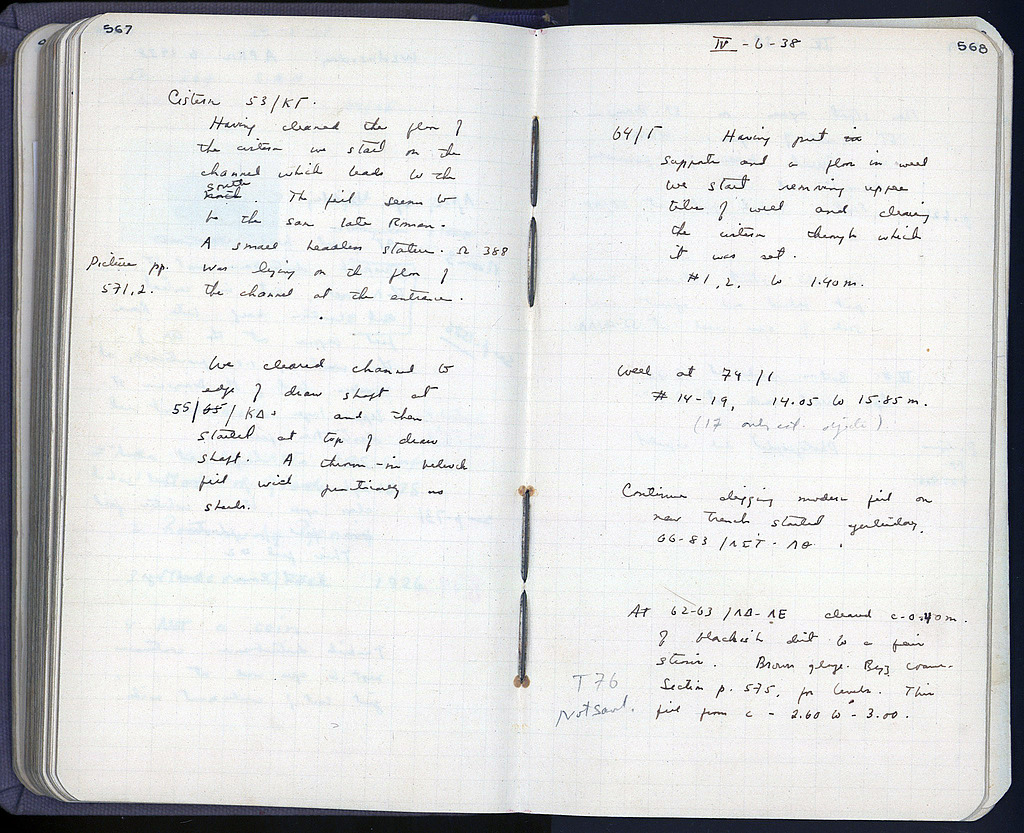 567
Cistern 53/ΚΓ.
Having cleared the floor of
the cistern we start on the
channel which leads to the
south
north. The fill seems to
be the same late Roman.
A small headless statue. Ω 388
Picture pp. was lying on the floor of
571,2. the channel at the entrance.
We cleared channel to
edge of draw shaft at
55/65/ΚΔ. and then
started at top of draw
shaft. A thrown-in
fill with practically no
sherds.
IV - 6 - 38
568
64/Γ Having put in
supports and a floor in well
we start removing upper
tiles of well and clearing
the cistern through which
it was set.
#1, 2, to 1.40 m.
Well at 74/
#14-19, 14.05 to 15.85 m.
(17 only cat. objects)
Continue digging modern fill on
new trench started yesterday,
66-83/ΛΣΤ - ΛΘ.
At 62-63/ΛΔ-ΛΕ cleared c-0.40 m.
of blackish dirt to a fair
. Brown glaze. Byz coarse.
Section p. 575, for levels. This
T76
Not saved. fill from c - 2.60 to - 3.00.